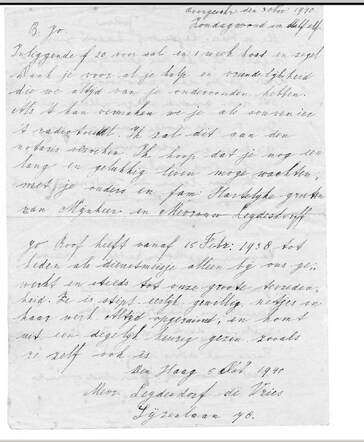 Zondagavond en half elf.
B. Jo
Inliggende f 20 voor sal en 1 week kost en zegel
Dank je voor al je hulp en vriendelijkheid
die we altijd van je ondervonden hebben.
Als 't kan verzoeken we je als souvenir
't radiotoestel. Ik zal dit aan den
notaris verzoeken. Ik hoop dat je nog een
lang en gelukkig leven moge wachten,
met je ouders en fam Hartelijke groeten
van Mijnheer en Mevrouw Leydesdorff
Jo Roof heeft vanaf 15 Febr. 1938 tot
heden als dienstmeisje alleen bij ons ge-
werkt en steeds tot onze groote tevreden-
heid. Ze is stipt eerlijk gewillig netjes in
haar werk Altijd opgeruimd, en komt
uit een degelijk keurig gezin zooals
ze zelf ook is
Den Haag 1940
Mevr. Leydesdorf de Vries
Lijzenlaan 98.